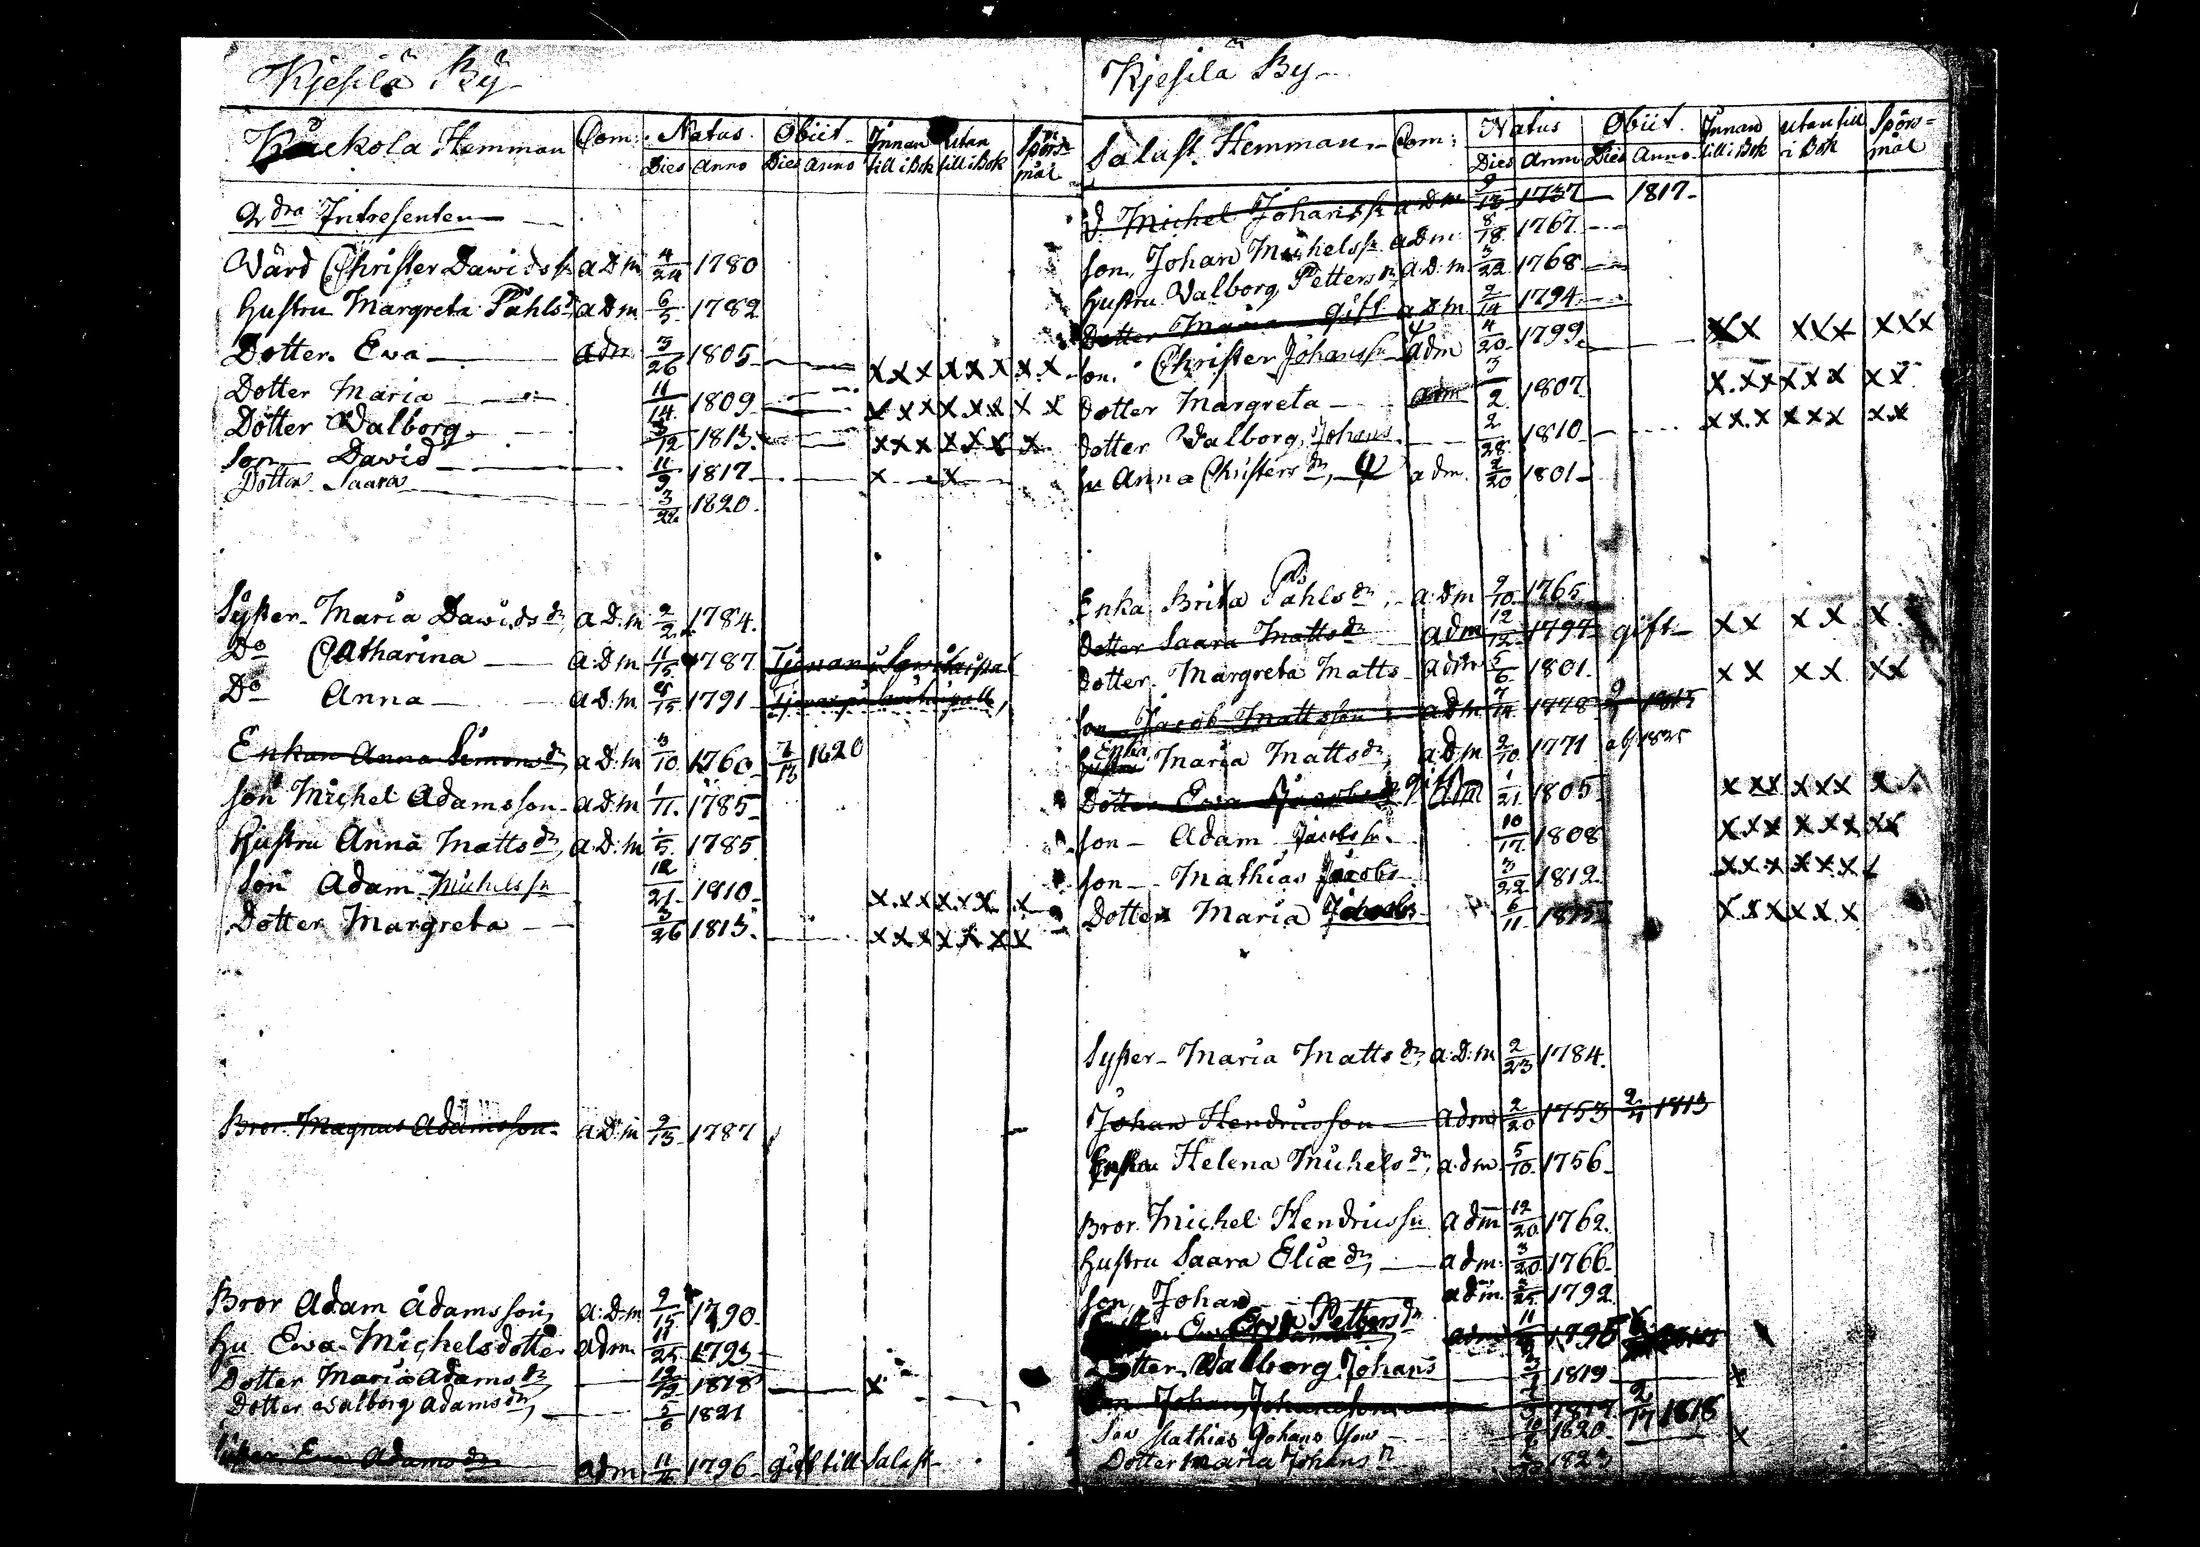 Kjesilä By
Kauckola Hemman Com: Natus Obiit Innan till i Bok Utan till i Bok Spörsmål
Dies Anno Dies Anno
2dra Intresenten
Värd Christer Dawidss: a.D.m 4/24 1780
Hustru Margreta Påhlsdr a.D.m 6/5 1782
Dotter Ewa adm 3/26 1805 x x x x x x x x
Dotter Maria 11/14 1809 x x x x x x x x
Dotter Walborg 3/12 1813 x x x x x x x
Son Dawid 11/9 1817 x x
Dotter Saara 3/22 1820
Syster Maria Dawidsdr a.D.m 2/2 1784
Do Catharina a.D.m 11/15 1787
Do Anna a.D.m 1791
Enkan Anna Simonsdr a.D.m 3/10 1760 7/13 1820
Son Michel Adamsson a.D.m 1/11 1785
Hustru Anna Mattsdr a.D.m 1/5 1785
Son Adam Michelsn 12/21 1810 x x x x x x x
Dotter Margreta 3/26 1813 x x x x x x x
Bror Magnus Adamsson a.D.m 9/13 1787
Bror Adam Adamsson a.D.m 9/15 1790
Hu Ewa Michelsdotter adm 11/25 1793
Dotter Maria Adamsdr 12/12 1818 x
Dotter Walborg Adamsdr 1821
Ewa Adamsdr adm 1796 gift till Salast
Kjesila By
Salast Hemman Com: Natus Obiit Innan till i Bok utan till i Bok Spörsmål
Dies Anno Dies Anno
Michel Johanss: a.D.m 9/13 1737 1817
Son Johan Michelss: a.D.m 8/18 1767
Hustru Walborg Pettersdr a.D.m 3/22 1768
Dotter Maria gift a.D.m 2/14 1794
Son Christer Johanssn adm 4/20 1799 x x x x x x x x
Dotter Margreta adm 3/2 1807 x x x x x x x x
Dotter Walborg Johans 2/28 1810 x x x x x x x x
Hu Anna Christersdr adm 2/20 1801
Enka Brita Påhlsdr a.D.m 9/10 1765
Dotter Saara Mattsdr adm 12/12 1794 gift x x x x x
Dotter Margreta Matts adm 5/6 1801 x x x x x x
Son Jacob Mattsson adm 7/14 1778
Enka Maria Mattsdr a.D.m 9/10 1771
Dotter Ewa 1/21 1805 x x x x x x x
Son Adam Jacobsn 10/17 1808 x x x x x x x x
Son Mathias Jacobs 3/22 1812 x x x x x x x
Dotter Maria 6/11 x x x x x x
Syster Maria Mattsdr a.D.m 2/23 1784
Johan Hendricsson adm 2/20 1753 1813
Helena Michelsdr adm 5/10 1756
Bror Michel Hendricsn adm 12/20 1762
Hustru Saara Eliædr adm 3/20 1766
Son Johan adm 3/25 1792
Ewa Pettersdr adm 1795
Dotter Walborg Johans 1819 x
Johan Johansson 9/17 1818
Son Mathias Johansson 1820 x
Dotter Maria Johansdr 1823